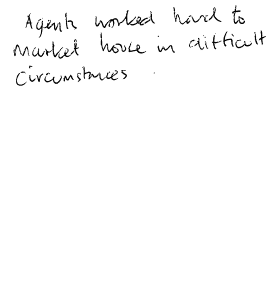 Agents worked hard to
market house in difficult
circumstances